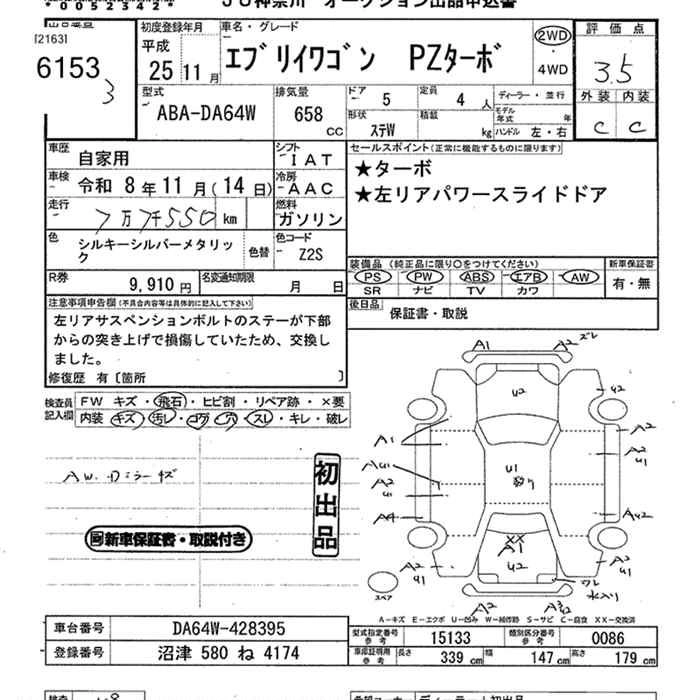 *00523422*
JU神奈川 オークション出品申込書
出品番号
[2163]
6153
3
初度登録年月
平成
25 11月
車名・グレード
エブリイワゴン PZターボ
2WD
・
4WD
評価点
3.5
外装 内装
C C
型式
ABA-DA64W
排気量
658
CC
ドア
5
定員
4 人
形状
ステW
積載
kg
ディーラー・並行
モデル年式 年
ハンドル 左・右
車歴
自家用
シフト
IAT
車検
令和 8年11月(14日)
冷房
AAC
走行
km
燃料
ガソリン
色
シルキーシルバーメタリック
色替
色コード
Z2S
R券
9,910円
名変通知期限
月 日
セールスポイント(正常に機能するものに限ります)
★ターボ
★左リアパワースライドドア
装備品(純正品に限り○をつけてください)
PS PW ABS エアB AW
SR ナビ TV カワ
新車保証書
有・無
後日品
保証書・取説
注意事項申告欄(不具合内容等は具体的に記入して下さい)
左リアサスペンションボルトのステーが下部
からの突き上げで損傷していたため、交換し
ました。
修復歴 有〔箇所 〕
検査員記入欄
FW キズ・飛石・ヒビ割・リペア跡・×要
内装 キズ・汚レ・コゲ・穴・スレ・キレ・破レ
AW.ロミラーキズ
初出品
新車保証書・取説付き
A1 A2 ズレ
U2
U2
A1
A2
A2
U1
AU1
A2
U1
U1
A4
AU2
XX
A1
U2
A2
U1
A2
U1
ワレ
水入り
A2
スペア
A-キズ E-エクボ U-凹み W-補修跡 S-サビ C-腐食 XX-交換済
車台番号
DA64W-428395
登録番号
沼津 580 ね 4174
型式指定番号
参考
15133
類別区分番号
参考
0086
車庫証明用
参考
長さ 339cm
幅 147cm
高さ 179cm